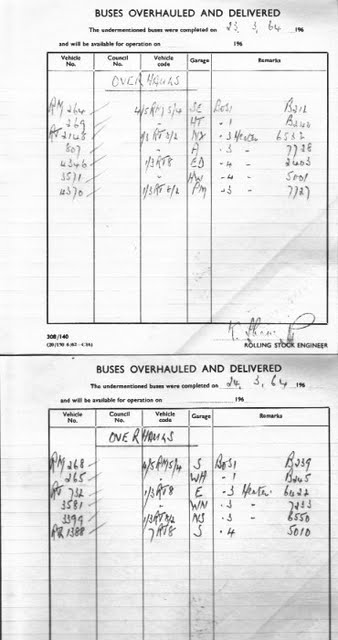 BUSES OVERHAULED AND DELIVERED
The undermentioned buses were completed on 23. 3. 64 196
and will be available for operation on 196
Vehicle No. Council No. Vehicle code Garage Remarks
OVERHAULS
RM 264 4/5 RM 5/4 SE Body B211
269 " HT " 1 B242
RT 2145 1/3 RT 3/2 NX . 3 Heater 6537
807 " A . 3 " 7728
4346 1/3 RT8 ED . 4 " 2403
3571 " HW . 4 " 5001
4370 1/3 RT 8/2 PM . 3 " 7727
308/140
ROLLING STOCK ENGINEER
BUSES OVERHAULED AND DELIVERED
The undermentioned buses were completed on 24. 3. 64 196
and will be available for operation on 196
Vehicle No. Council No. Vehicle code Garage Remarks
OVERHAULS
RM 268 4/5 RM 5/4 S Body B239
265 " WH " 1 B245
RT 732 1/3 RT8 E . 3 Heater 6022
3581 " WN . 3 " 7233
3399 1/3 RT 8/2 NS . 3 " 6550
1388 7 RT8 S . 4 5010